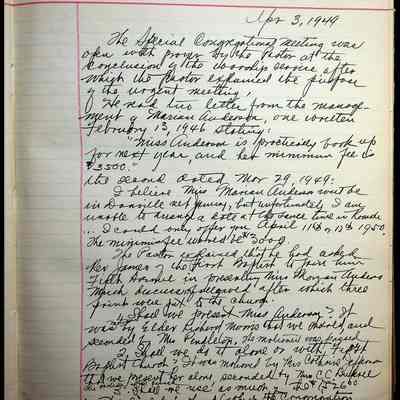 Apr 3, 1949
The Special Congregational meeting was
open with prayer by the Pastor at the
conclusion of the worship service after
which the Pastor explained the purpose
of the urgent meeting,
He read two letter from the manage-
ment of Marian Anderson, one written
February 13, 1946 stating:
"Miss Anderson is practically book up
for next year, and her minimum fee is
$3500."
the second dated Mar 29, 1949:
I believe Miss Marian Anderson
in Danville but unfortunately I am
unable to arrange a date at the same time in
... I could only offer you April 11th or 13th 1950.
The minimum fee would be $3000.
The Pastor explained that he had asked
Rev James of the First Baptist to join him
in presenting Miss Marian Anderson
Much discussion after which three
point were put to the church.
1. Shall we present Miss Anderson? It
was by Elder Richard Morris that we should, and
seconded by Mrs Pendleton, the motioned was passed
2. Shall we do it alone or with First
Baptist Church? It was motioned by Mrs
that we present her alone, seconded by Mrs C.C.
3. Shall we use as much